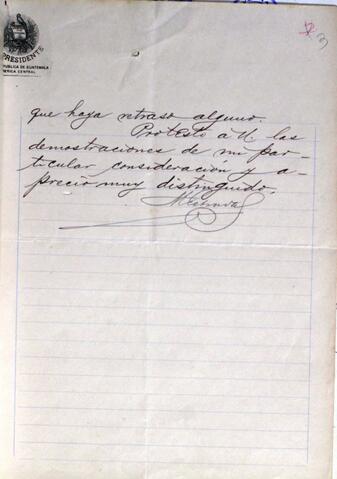 PRESIDENTE
REPUBLICA DE GUATEMALA
AMERICA CENTRAL
que haya retraso alguno.
Protesto á U. las
demostraciones de mi par-
ticular consideración y a-
precio muy distinguido.